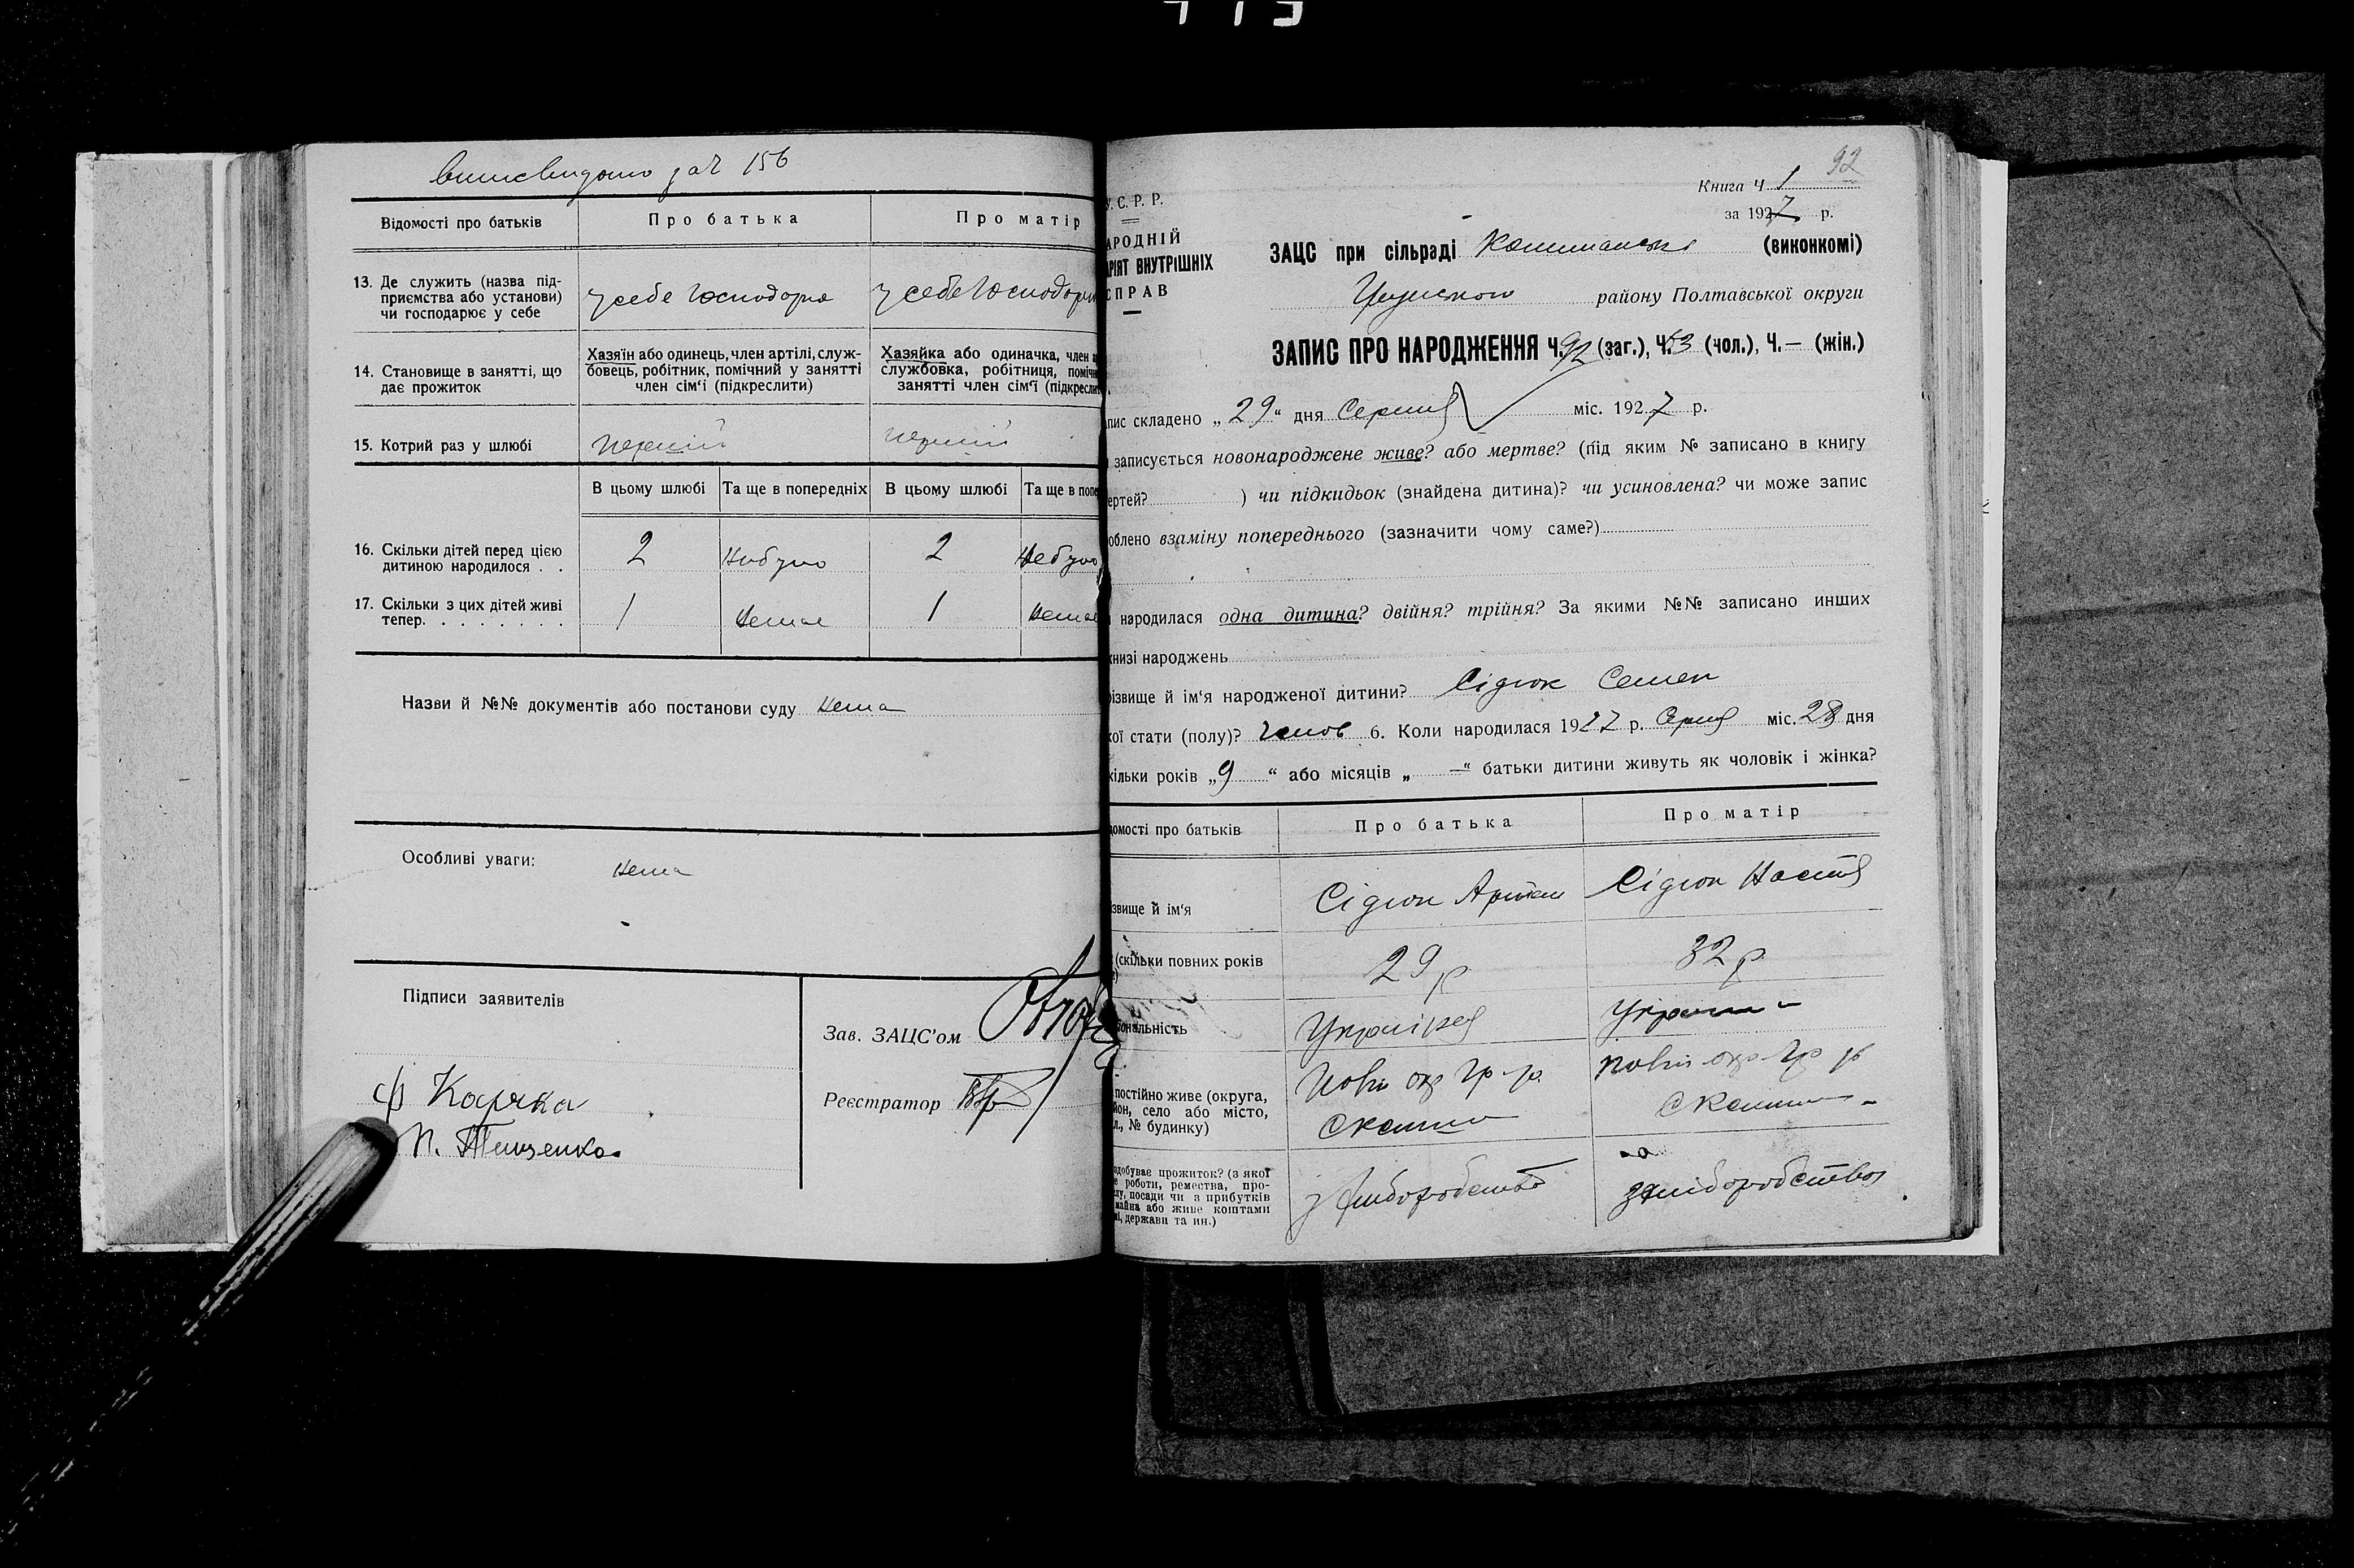 156
Відомості про батьків
Про батька
Про матір
13. Де служить (назва під-
приємства або установи)
чи господарює у себе
у себе господарює
у себе господарює
14. Становище в занятті, що
дає прожиток
Хазяїн або одинець, член артілі, служ-
бовець, робітник, помічний у занятті
член сім'ї (підкреслити)
Хазяйка або одиначка, член а
службовка, робітниця, поміч
занятті член сім'ї (підкресли
15. Котрий раз у шлюбі
перший
перший
В цьому шлюбі
Та ще в попередніх
В цьому шлюбі
Та ще в попе
16. Скільки дітей перед цією
дитиною народилося . .
2
Небуло
2
Небуло
17. Скільки з цих дітей живі
тепер. . . . . . . .
1
Немає
1
Немає
Назви й №№ документів або постанови суду Нема
Особливі уваги:
Нема
Підписи заявителів
Зав. ЗАЦС'ом
Карка
П. Тищенко
Реєстратор
92
Книга Ч 1
за 1927 р.
У. С. Р. Р.
АРОДНІЙ
АРІЯТ ВНУТРІШНІХ
СПРАВ
ЗАЦС при сільраді (виконкомі)
району Полтавської округи
ЗАПИС ПРО НАРОДЖЕННЯ Ч. 92 (заг.), Ч. 53 (чол.), Ч. — (жін.)
пис складено „ 29 " дня Серпня міс. 1927 р.
записується новонароджене живе? або мертве? (під яким № записано в книгу
ертей? ) чи підкидьок (знайдена дитина)? чи усиновлена? чи може запис
облено взаміну попереднього (зазначити чому саме?)
народилася одна дитина? двійня? трійня? За якими №№ записано инших
книзі народжень
різвище й ім'я народженої дитини? Сідюк Семен
кої стати (полу)? чолов 6. Коли народилася 1927 р. Серпня міс. 28 дня
кільки років „ 9 " або місяців „ — " батьки дитини живуть як чоловік і жінка?
домості про батьків
Про батька
Про матір
звище й ім'я
Сідюк Артем
Сідюк Настя
(скільки повних років
29 р
32 р
ональність
Українец
Україн
постійно живе (округа,
йон, село або місто,
л., № будинку)
здобуває прожиток? (з якої
е роботи, ремества, про-
лу, посади чи з прибутків
майна або живе коштами
ні, держави та ин.)
хліборобство
хліборобство